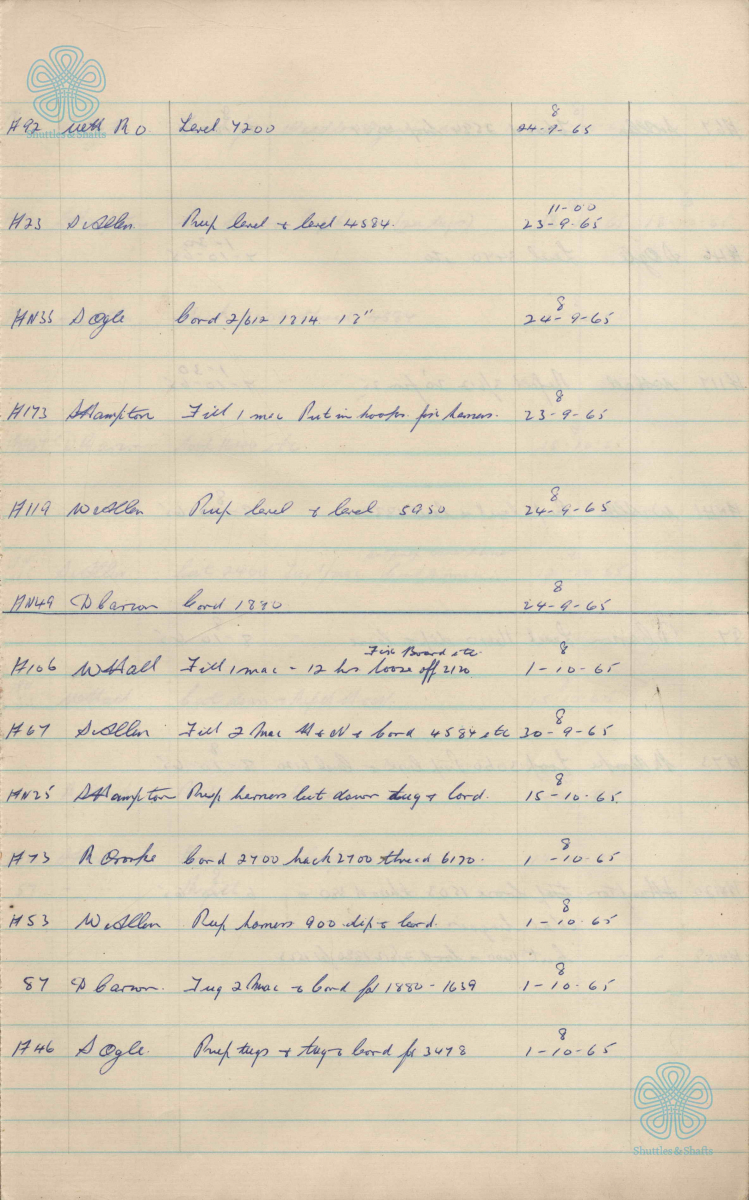 Shuttles & Shafts
8
H92 Level 7200 24-9-65
11-00
H23 S Allen Prep level & level 4584. 23-9-65
8
HN35 S Ogle Cord 2/612 1214 12" 24-9-65
8
H173 S Hampton Fill 1 mac Put in hooks for harness. 23-9-65
8
H119 W Allen Prep level & level 5950 24-9-65
8
HN49 D Carson Cord 24-9-65
Fix Board etc. 8
H106 W Hall Fill 1 mac - 12 hrs loose off 2120 1-10-65
8
H67 S Allen Fill 2 Mac & Cord 4584 etc 30-9-65
8
HN25 S Hampton Prep harness let down tug & Cord. 15-10-65
8
H73 R Cord 2700 hack 2700 thread 6170. 1-10-65
8
H53 W Allen Prep harness 900 dip & Cord. 1-10-65
8
87 D Carson. Tug 2 Mac & Cord for 1880-1639 1-10-65
8
H46 S Ogle. Prep tugs & tug & Cord for 3478 1-10-65
Shuttles & Shafts